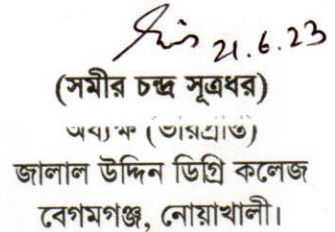 21.6.23
(সমীর চন্দ্র সূত্রধর)
অধ্যক্ষ (ভারপ্রাপ্ত)
জালাল উদ্দিন ডিগ্রি কলেজ
বেগমগঞ্জ, নোয়াখালী।